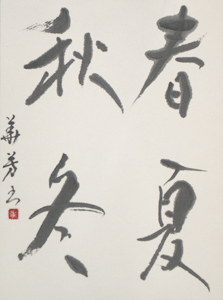 春夏
秋冬
華芳書